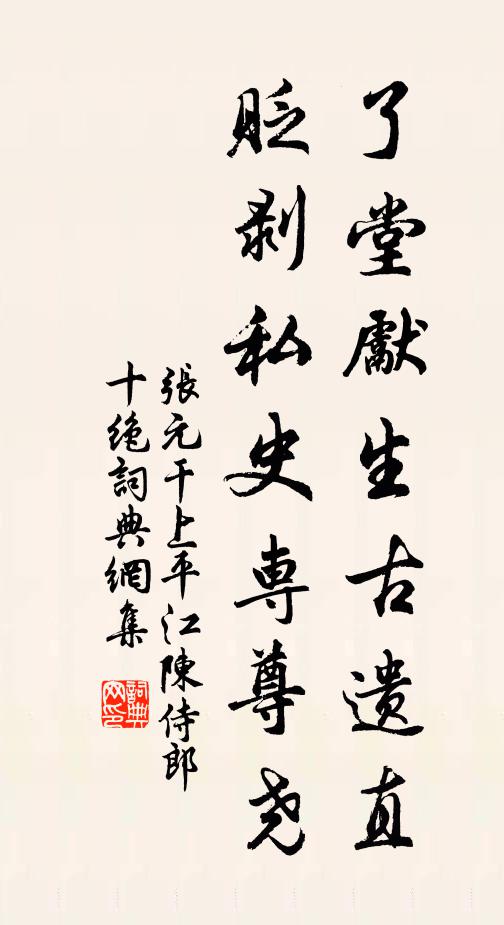 了堂獻生古遺直
貶剝私史専尊尧
張元干上平江陳侍郎
十绝詞典網集
詞典網印